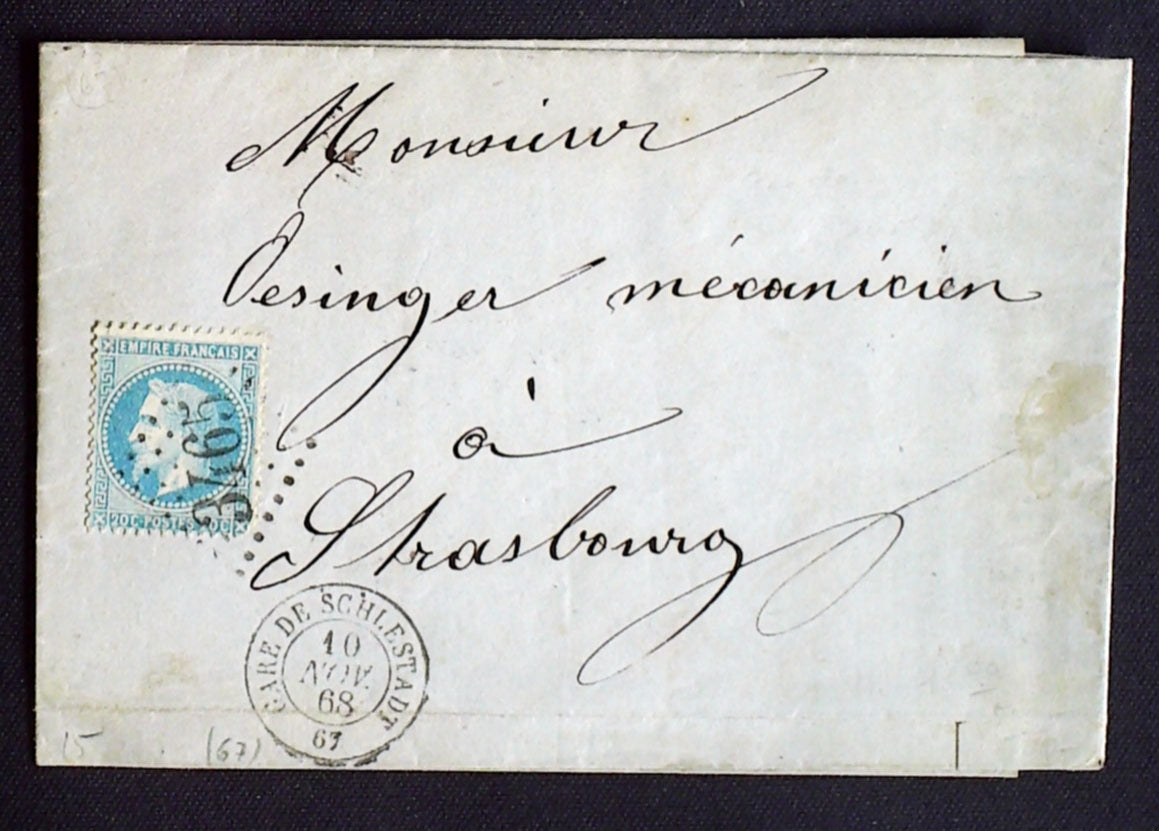 Monsieur
Oesinger mécanicien
à
Strasbourg
EMPIRE FRANCAIS
20 C POSTES 20 C
GARE DE SCHLESTADT
10
68
67
15
(67)